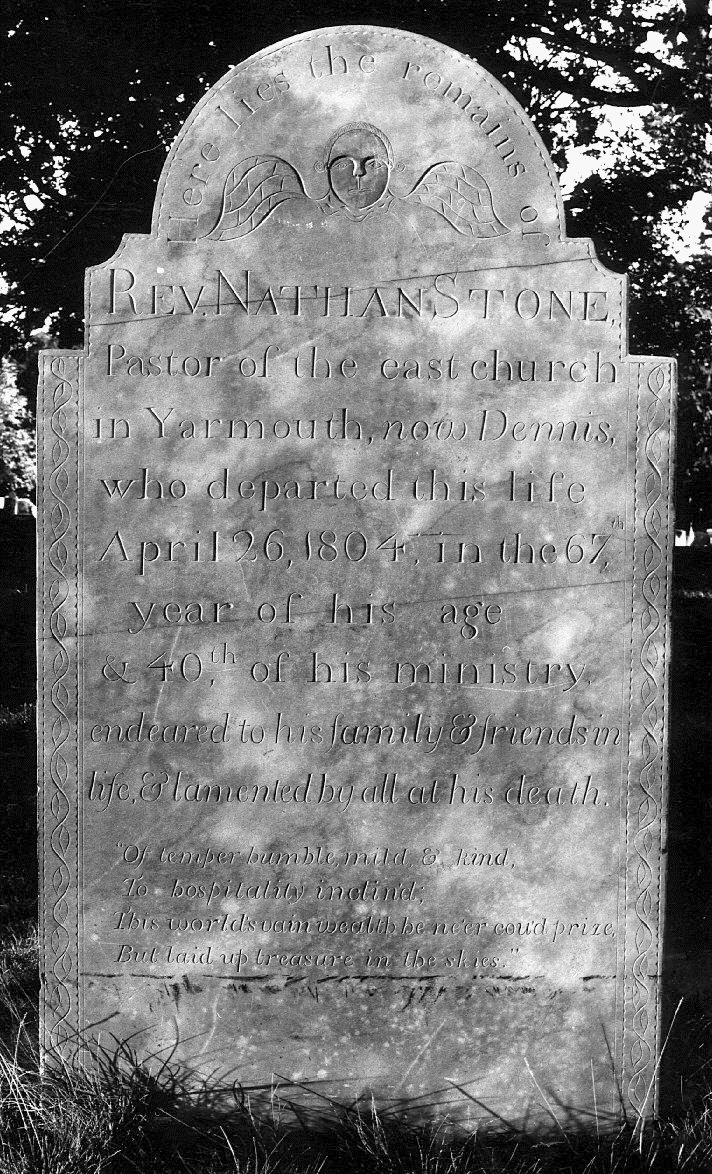 Here lies the remains of
REV. NATHAN STONE,
Pastor of the east church
in Yarmouth, now Dennis,
who departed this life
April 26, 1804, in the 67,th
year of his age
& 40,th of his ministry,
endeared to his family & friends in
life, & lamented by all at his death.
"Of temper humble, mild, & kind,
To hospitality inclin'd;
This world's vain wealth he ne'er cou'd prize,
But laid up treasure in the skies."